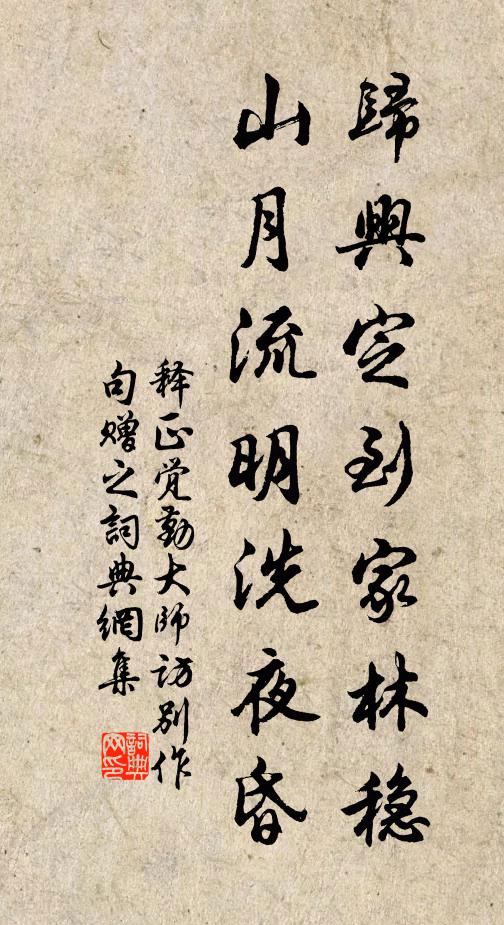 歸興定到家林穏
山月流明洗夜昏
释正覚勤大師访别作
句赠之詞典網集
詞典
网印